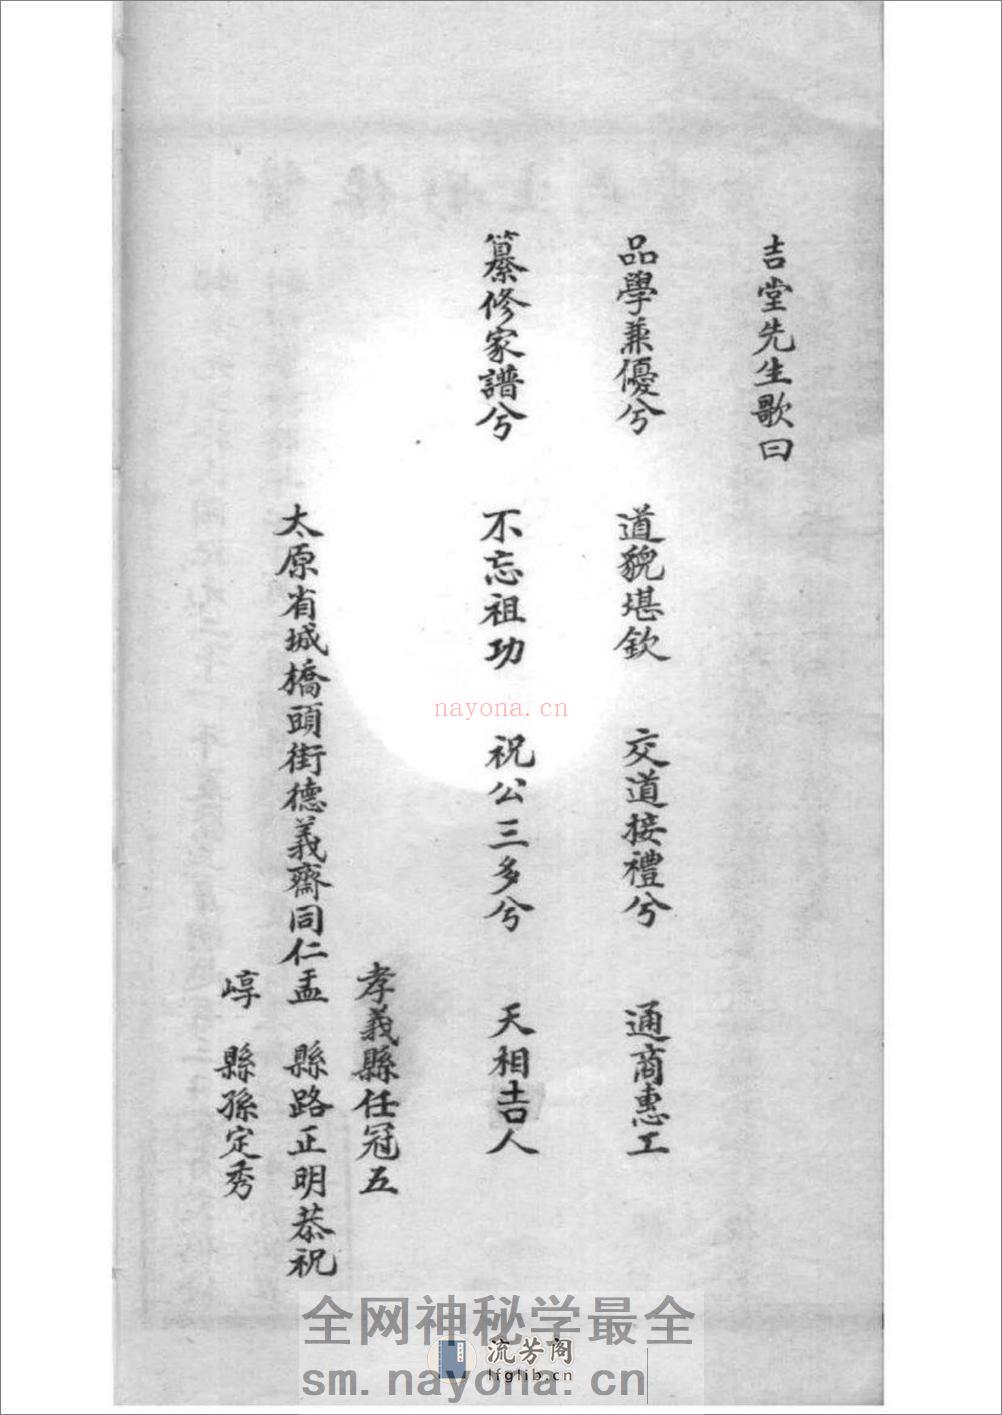 吉堂先生歌曰
品學兼優兮 道貌堪欽 交道接禮兮 通商惠工
纂修家譜兮 不忘祖功 祝公三多兮 天相吉人
孝義縣任冠五
太原省城橋頭街德義齋同仁盂 縣路正明恭祝
崞 縣孫定秀
nayona.cn
全网神秘学最全
流芳阁
lfglib.cn
sm.nayona.cn